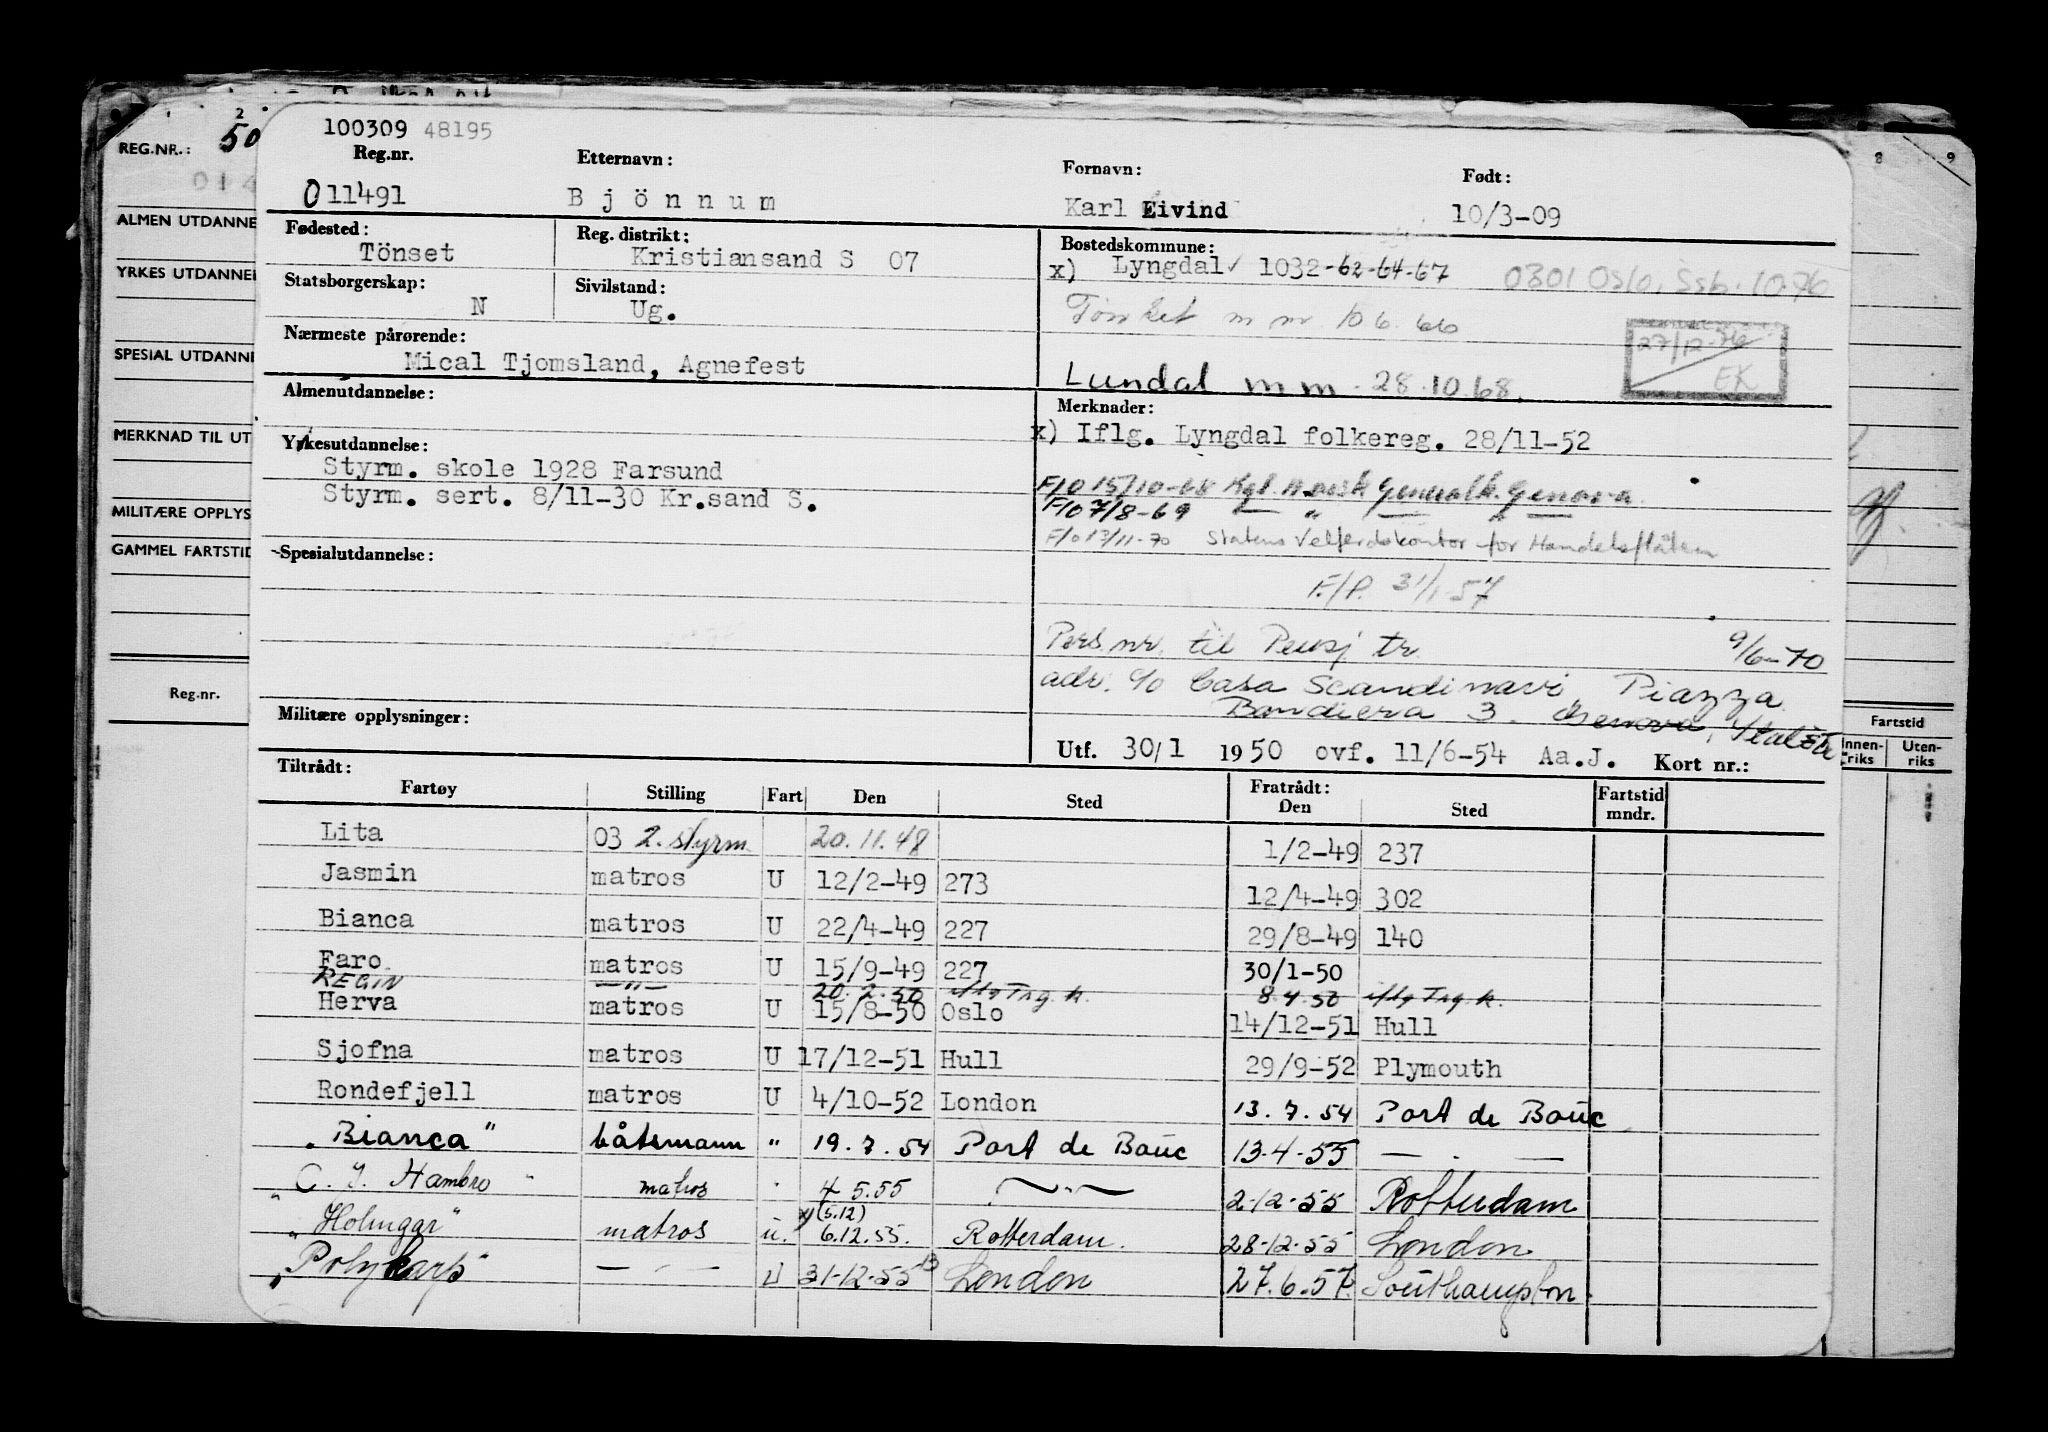 REG.NR.: 50
ALMEN UTDANNE
YRKES UTDANNE
SPESIAL UTDANNE
MERKNAD TIL UT
MILITÆRE OPPLYS
GAMMEL FARTSTID
Reg.nr.
2
8 9
Fartstid
Innen-riks Uten-riks
100309 48195
Reg.nr. Etternavn: Fornavn: Født:
011491 Bjönnum Karl Eivind 10/3-09
Fødested: Reg. distrikt: Bostedskommune:
Tönset Kristiansand S 07 x) Lyngdal ✓ 1032-62-64-67 0301 Oslo, Ssb. 10.76
Statsborgerskap: Sivilstand:
N Ug. m nr. 10 6. 66
Nærmeste pårørende: 27/12-76
Mical Tjomsland, Agnefest EK
Lundal m m. 28.10.68.
Almenutdannelse: Merknader:
x) Iflg. Lyngdal folkereg. 28/11-52
Yrkesutdannelse:
Styrm. skole 1928 Farsund
Styrm. sert. 8/11-30 Kr.sand S.
F/O 15/10-68 Kgl. Norsk Generalk. Genova.
F/O 7/8-69 — " — " —
F/O 13/11-70 Statens Velferdskontor for Handelsflåten
Spesialutdannelse:
F/P. 31/1 57
Pers.nr. til Pensj tr. 9/6-70
adr. c/o Casa Scandinavi, Piazza
Bandiera 3. Genova, Italia
Militære opplysninger:
Utf. 30/1 1950 ovf. 11/6-54 Aa.J. Kort nr.:
Tiltrådt: Fratrådt:
Fartøy Stilling Fart Den Sted Den Sted Fartstid mndr.
Lita 03 2. styrm 20.11.48 1/2-49 237
Jasmin matros U 12/2-49 273 12/4-49 302
Bianca matros U 22/4-49 227 29/8-49 140
Faro matros U 15/9-49 227 30/1-50
REGIN —"— 20.2.50 iflg Trg.k. 8.4.50 iflg Trg.k.
Herva matros U 15/8-50 Oslo 14/12-51 Hull
Sjofna matros U 17/12-51 Hull 29/9-52 Plymouth
Rondefjell matros U 4/10-52 London 13.7.54 Port de Bouc
"Bianca" båtsmann " 19.7.54 Port de Bouc 13.4.55 — . —
"C. J. Hambro" matros " 4 5.55 — " — 2-12-55 Rotterdam
(5.12)
"Holmgar" matros u. 6.12.55. Rotterdam. 28-12-55 London
"Polykarp" — " — U 31-12-55 London 27.6.57. Southampton